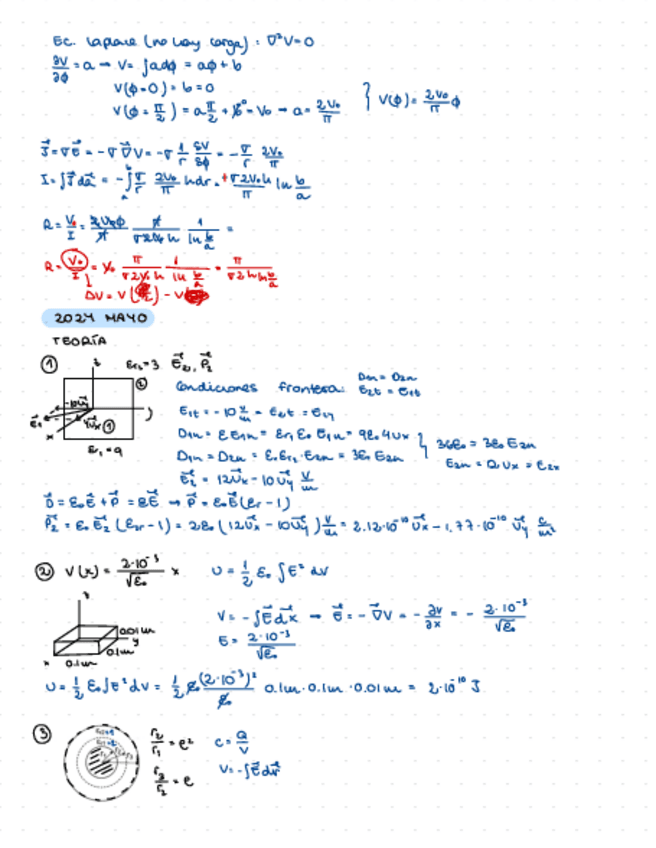 Ec. Laplace (no hay carga): ∇²V=0
∂V/∂ϕ = a → V = ∫adϕ = aϕ + b
V(ϕ=0) = b = 0
V(ϕ = π/2) = a π/2 + b⁰ = V₀ → a = 2V₀/π } V(ϕ) = 2V₀/π ϕ
J⃗ = σE⃗ = -σ∇⃗V = -σ 1/r ∂V/∂ϕ = -σ/r 2V₀/π
I = ∫J⃗da⃗ = -∫ₐᵇ σ/r 2V₀/π hdr = + σ2V₀h/π ln b/a
R = V₀/I = 2V₀ϕ/π π/σ2V₀h 1/ln b/a =
R = V₀/I = V₀ π/σ2V₀h 1/ln b/a = π/σ2h ln b/a
ΔV = V(π/2) - V
2024 MAYO
TEORÍA
① z εr₂=3 E⃗₂, P⃗₂
② Condiciones frontera: D₁n = D₂n
E₂t = E₁t
-10u⃗y y E⃗₁ 4u⃗x ① x
εr₁ = 9
E₁t = -10 V/m = E₂t = E₂y
D₁n = εE₁n = εr₁ε₀E₁n = 9ε₀4ux
D₁n = D₂n = ε₀εr₂·E₂n = 3ε₀E₂n } 36ε₀ = 3ε₀E₂n
E₂n = 12ux = E₂x
E⃗₂ = 12u⃗x - 10u⃗y V/m
D⃗ = ε₀E⃗ + P⃗ = εE⃗ → P⃗ = ε₀E⃗(εr - 1)
P⃗₂ = ε₀E⃗₂(εr₂ - 1) = 2ε₀(12u⃗x - 10u⃗y) V/m = 2.12·10⁻¹⁰ u⃗x - 1.77·10⁻¹⁰ u⃗y C/m²
② V(x) = 2·10⁻³/√ε₀ x U = 1/2 ε₀ ∫E² dV
z 0.01m y x 0.1m 0.1m
V = -∫E⃗dx⃗ → E⃗ = -∇⃗V = -∂V/∂x = - 2·10⁻³/√ε₀
E = 2·10⁻³/√ε₀
U = 1/2 ε₀∫E²dV = 1/2 ε₀ (2·10⁻³)²/ε₀ 0.1m·0.1m·0.01m = 2·10⁻¹⁰ J
③ r₂/r₁ = e² C = Q/V
r₃/r₂ = e V = -∫E⃗dr⃗